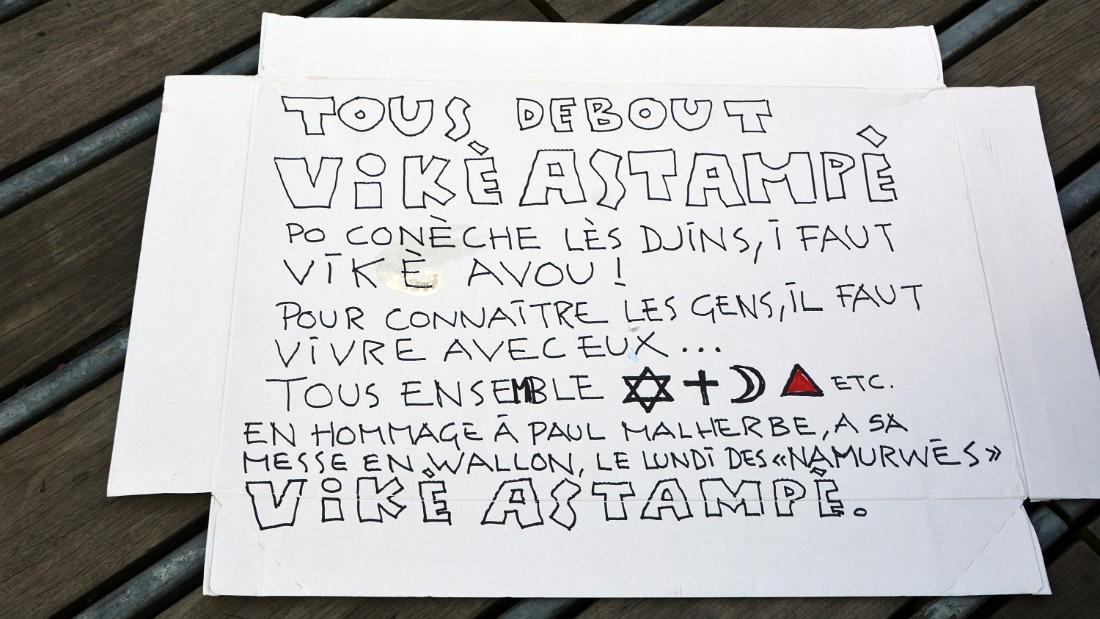 TOUS DEBOUT
ViKÈ ASTAMPÈ
PO CONÈCHE LÈS DJÏNS, Ï FAUT
VÏKÈ AVOU !
POUR CONNAÎTRE LES GENS, ÏL FAUT
VÏVRE AVEC EUX...
TOUS ENSEMBLE ✡ ✝ ☽ ▲ ETC.
EN HOMMAGE À PAUL MALHERBE, A SA
MESSE EN WALLON, LE LUNDÏ DES «NAMURWÈS»
ViKÈ ASTAMPÈ.